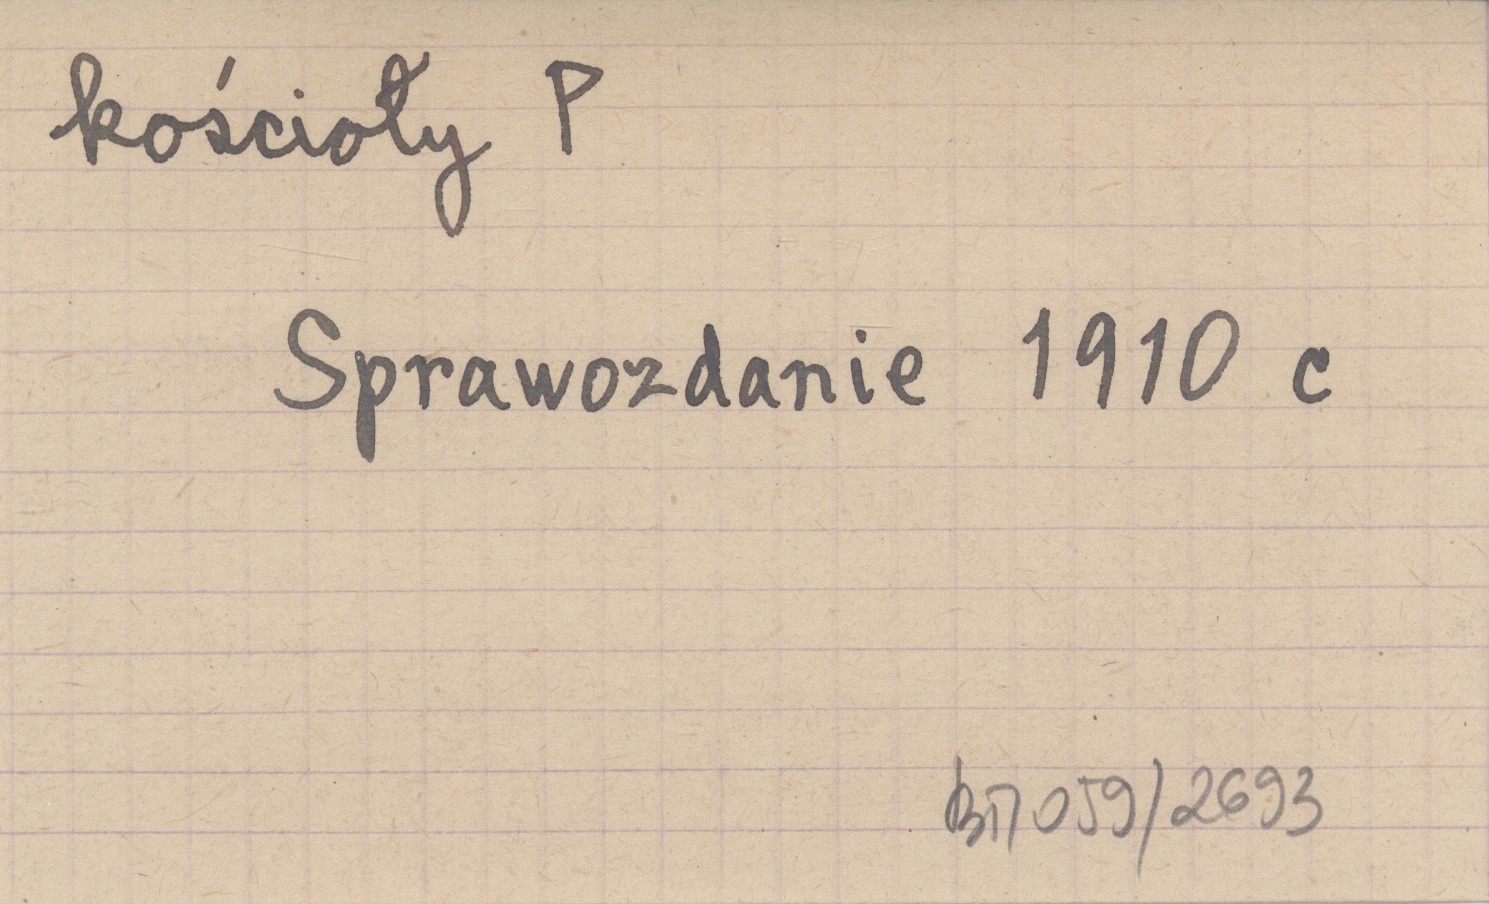 kościoły P
Sprawozdanie 1910 c
ВП059/2693